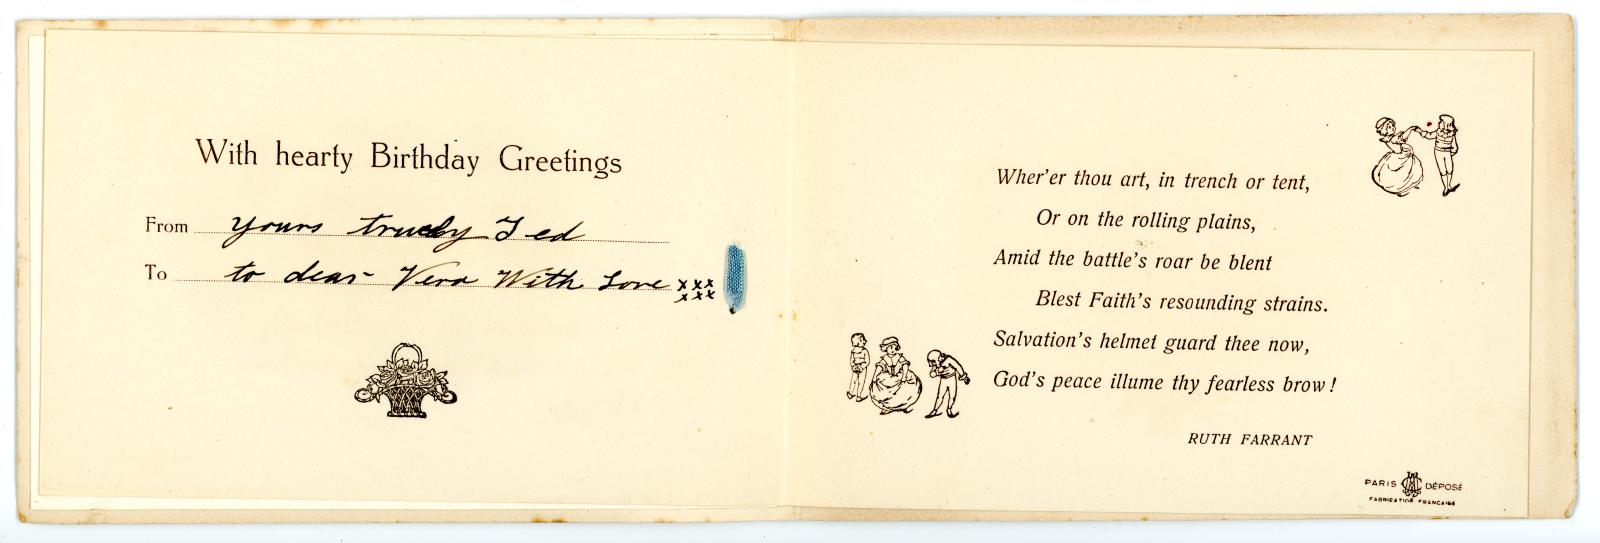 With hearty Birthday Greetings
From yours truely Ted
To to dear Vera With Love xxx
xxx
Wher'er thou art, in trench or tent,
Or on the rolling plains,
Amid the battle's roar be blent
Blest Faith's resounding strains.
Salvation's helmet guard thee now,
God's peace illume thy fearless brow!
RUTH FARRANT
PARIS DÉPOSÉ
FABRICATION FRANÇAISE